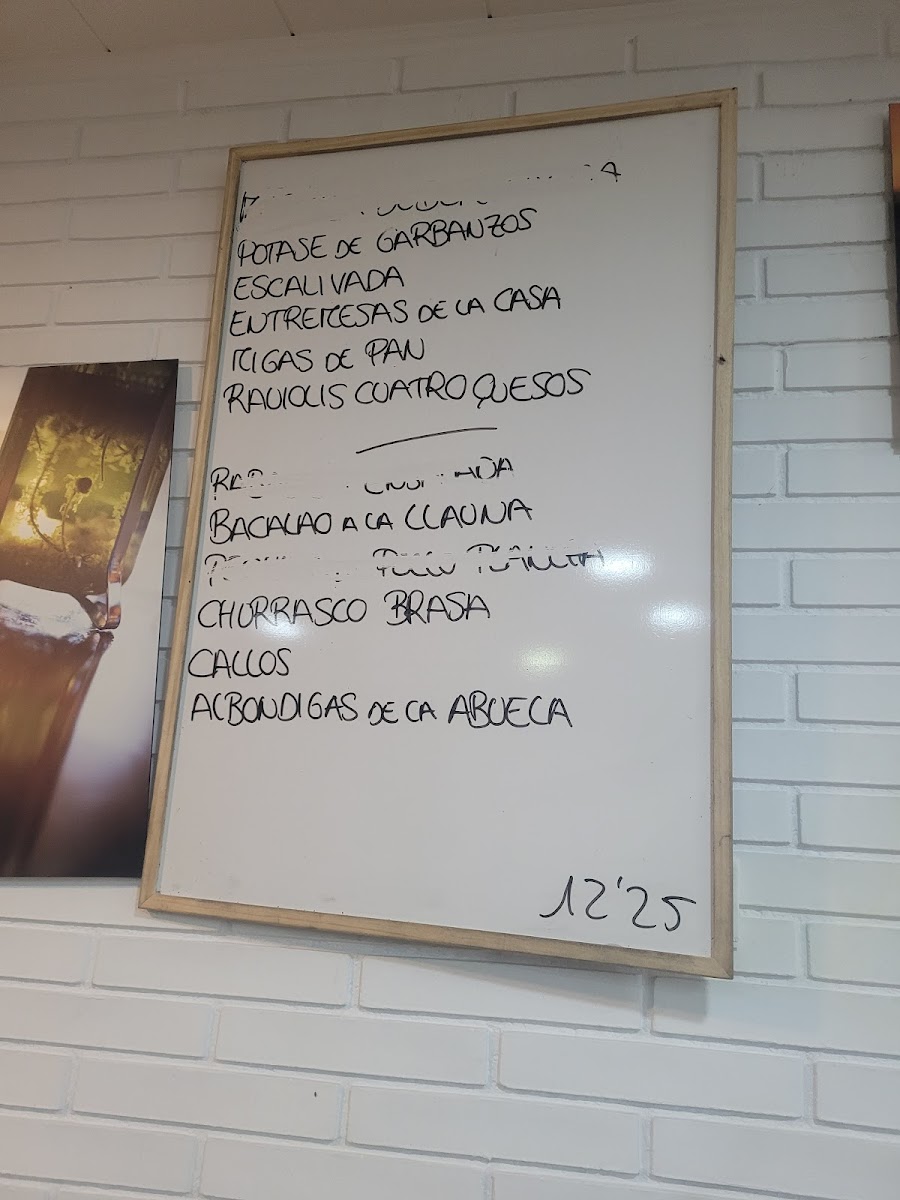 POTAJE DE GARBANZOS
ESCALIVADA
ENTREMESAS DE LA CASA
MIGAS DE PAN
RAVIOLIS CUATRO QUESOS
BACALAO A LA LLAUNA
CHURRASCO BRASA
CALLOS
ALBONDIGAS DE LA ABUELA
12'25